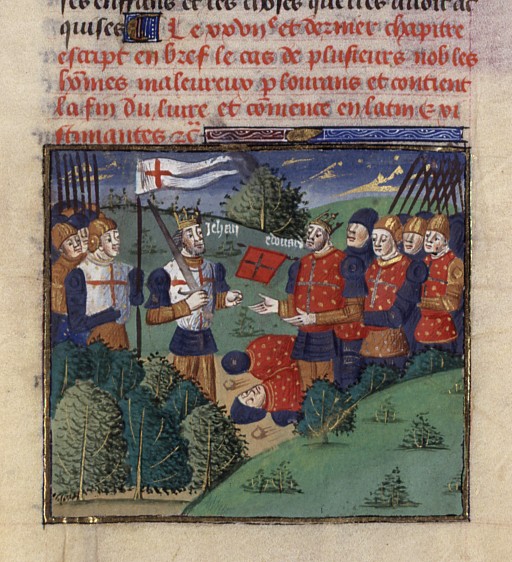 ses enffans et les choses quelles auoit ac
quises Le xxvii^e et dernier chapitre
escript en bref le cas de plusieurs nobles
hõmes maleureux plourans et contient
la fin du liure et cõmence en latin &
Jehan
edouard